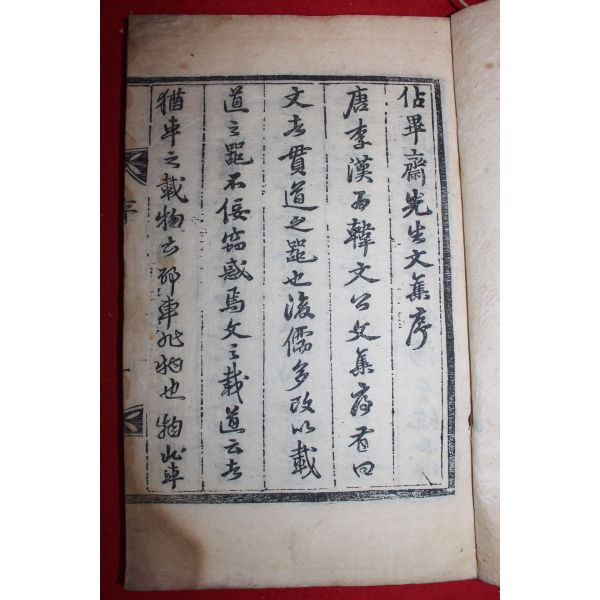 佔畢齋先生文集序
唐李漢爲韓文公文集序首曰
文者貫道之器也後儒多改以載
道之器不佞竊惑焉文之載道云者
猶車之載物云耶車非物也物非車
序
一